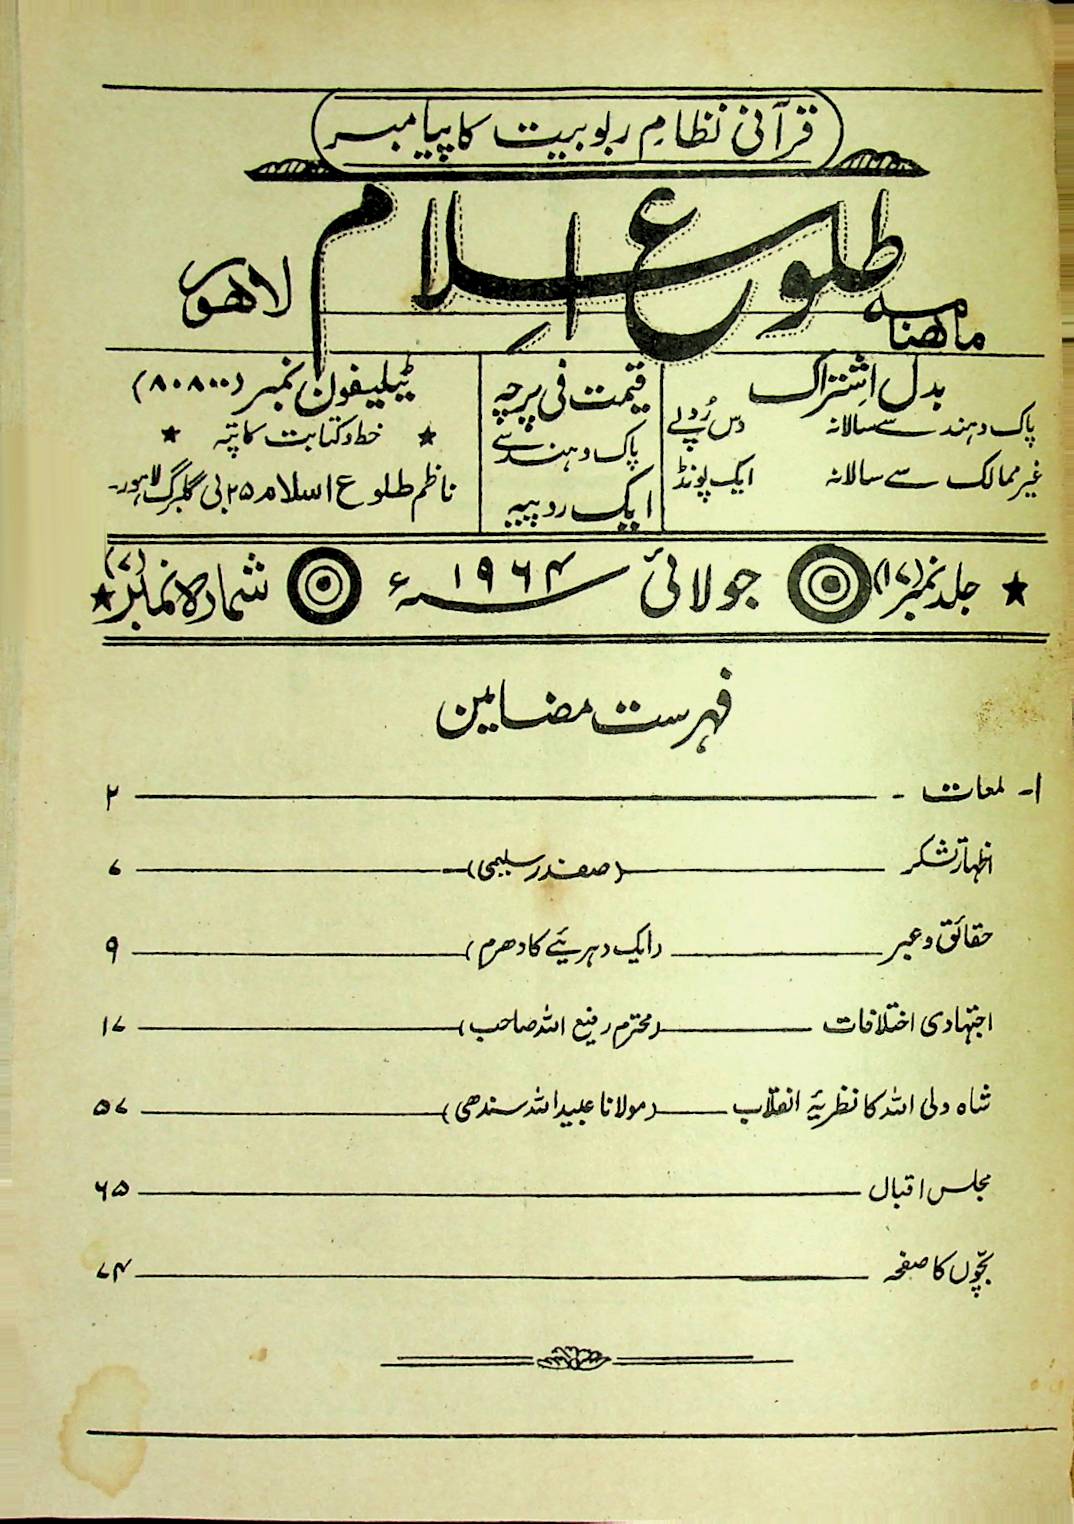 قرآنی نظامِ ربوبیت کا پیامبر
ماھنامہ طلوعِ اسلام لاھور
بدل اشتراک
پاک و ہند سے سالانہ دس روپے
غیر ممالک سے سالانہ ایک پونڈ
قیمت فی پرچہ
پاک و ہند سے
ایک روپیہ
ٹیلیفون نمبر (۸۰۸۰۰)
★ خط و کتابت کا پتہ ★
ناظم طلوع اسلام ۲۵ بی گلبرگ لاہور۔
★ جلد نمبر (۱۷) جولائی ۱۹۶۴ء شمارہ نمبر (۷) ★
فہرست مضامین
۱۔ لمعات - ۲
اظہار تشکر (صفدر سلیمی) ۷
حقائق و عبر (ایک دہریئے کا دھرم) ۹
اجتہادی اختلافات (محترم رفیع اللہ صاحب) ۱۷
شاہ ولی اللہ کا نظریۂ انقلاب (مولانا عبیداللہ سندھی) ۵۷
مجلس اقبال ۶۵
بچّوں کا صفحہ ۷۴